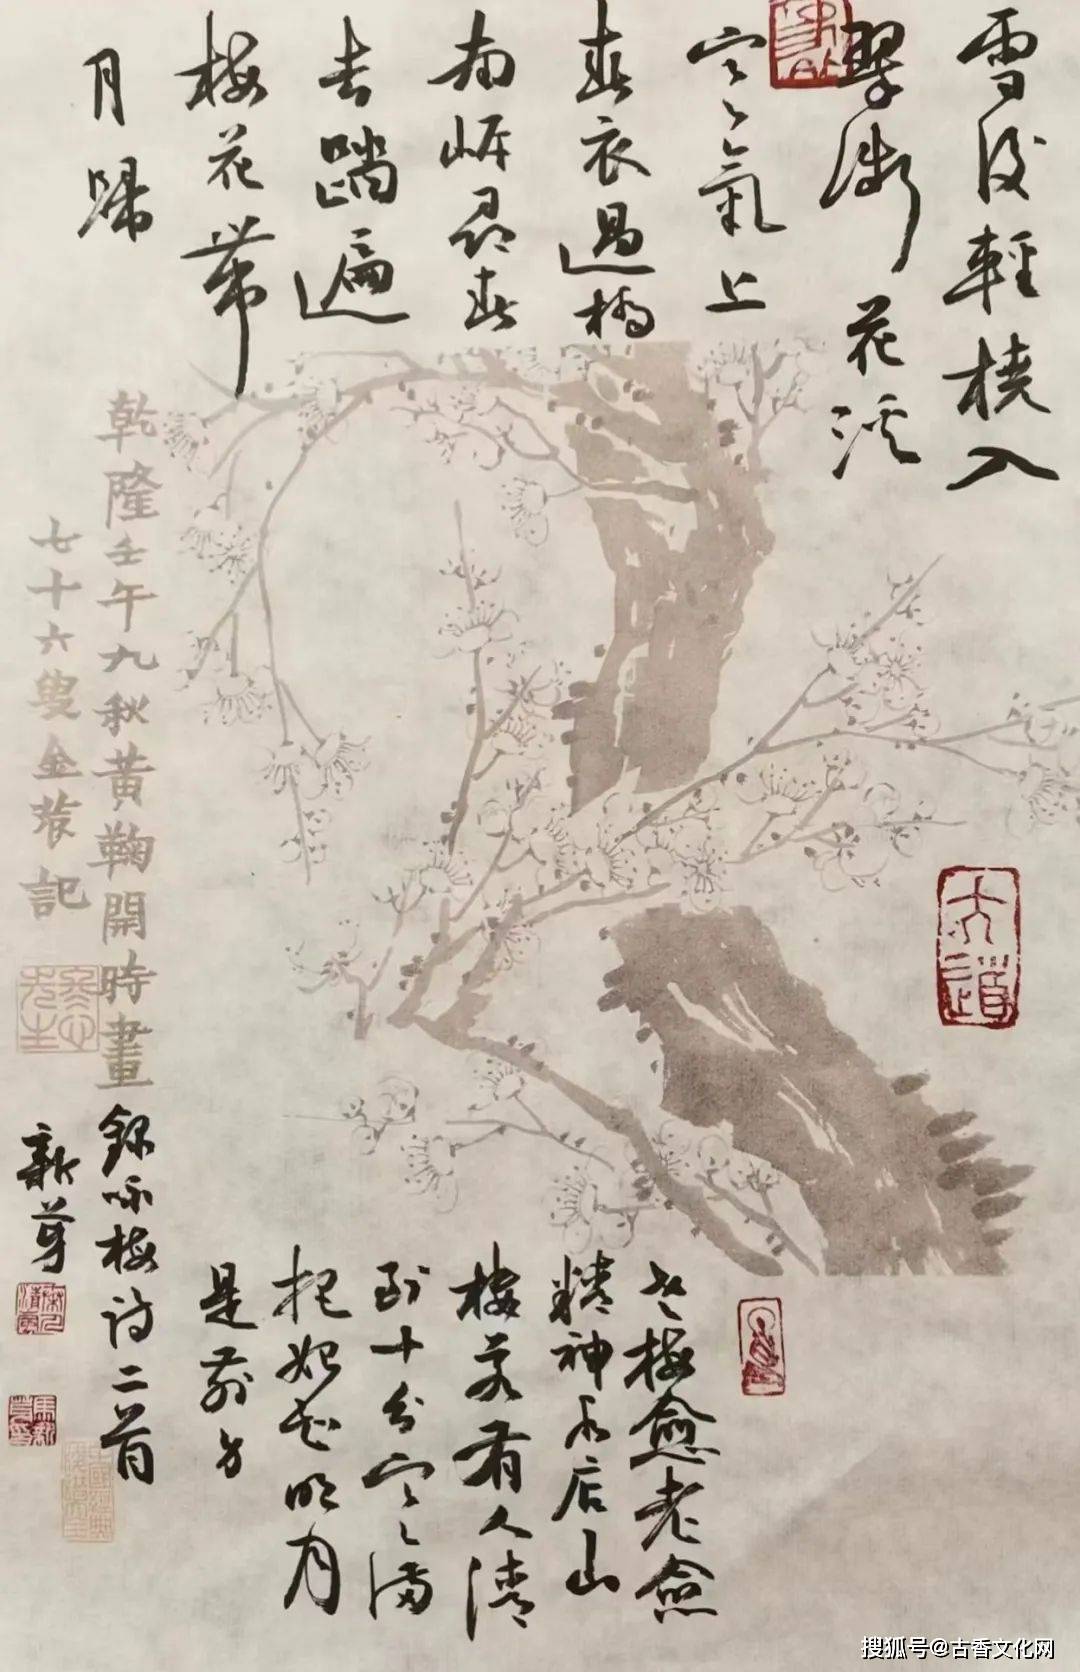 雪後輕橈入
翠微 花溪
寒氣上
春衣過橋
南岸尋春
去蹋遍
梅花帶
月歸
乾隆壬午九秋黃鞠開時畫
七十六叟金農記
老梅愈老愈
精神水店山
樓若有人清
到十分寒滿
把始知明月
是前身
錄咏梅詩二首
搜狐号@古香文化网